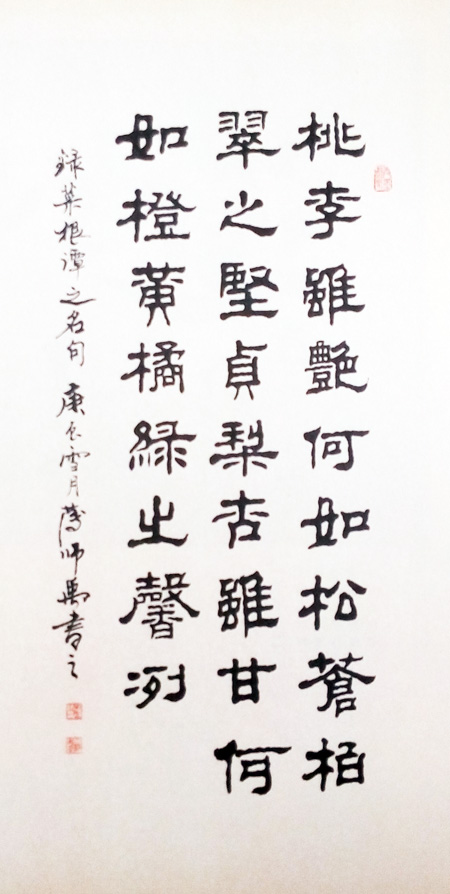 桃李雖艷何如松蒼栢
翠之堅貞梨杏雖甘何
如橙黃橘綠之馨冽
録菜根谭之名句 庚辰雪月 师禹書之